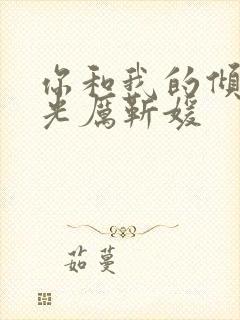 你和我的倾
光厲靳媛
茹蔓